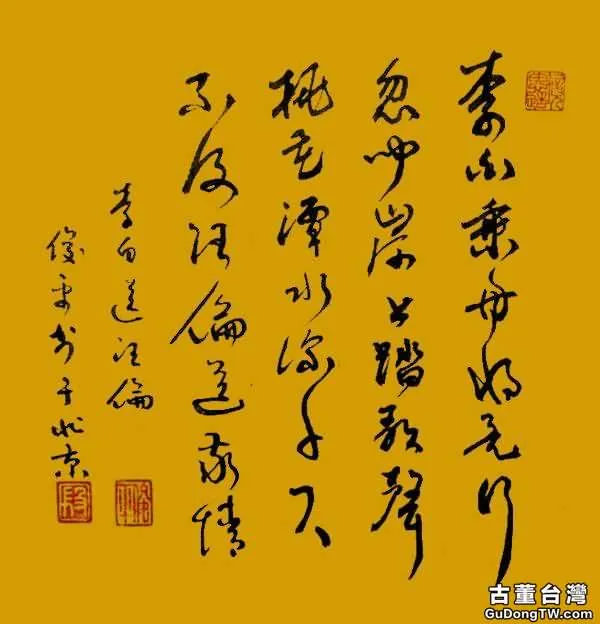 李白乘舟将欲行
忽聞岸上踏歌聲
桃花潭水深千尺
不及汪倫送我情
李白送汪倫
俊平书于北京
古董台灣
GuDongTW.com